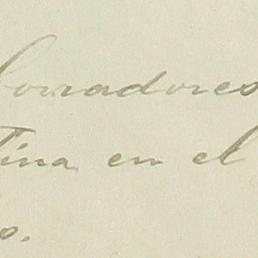 borradores
tina en el
s.